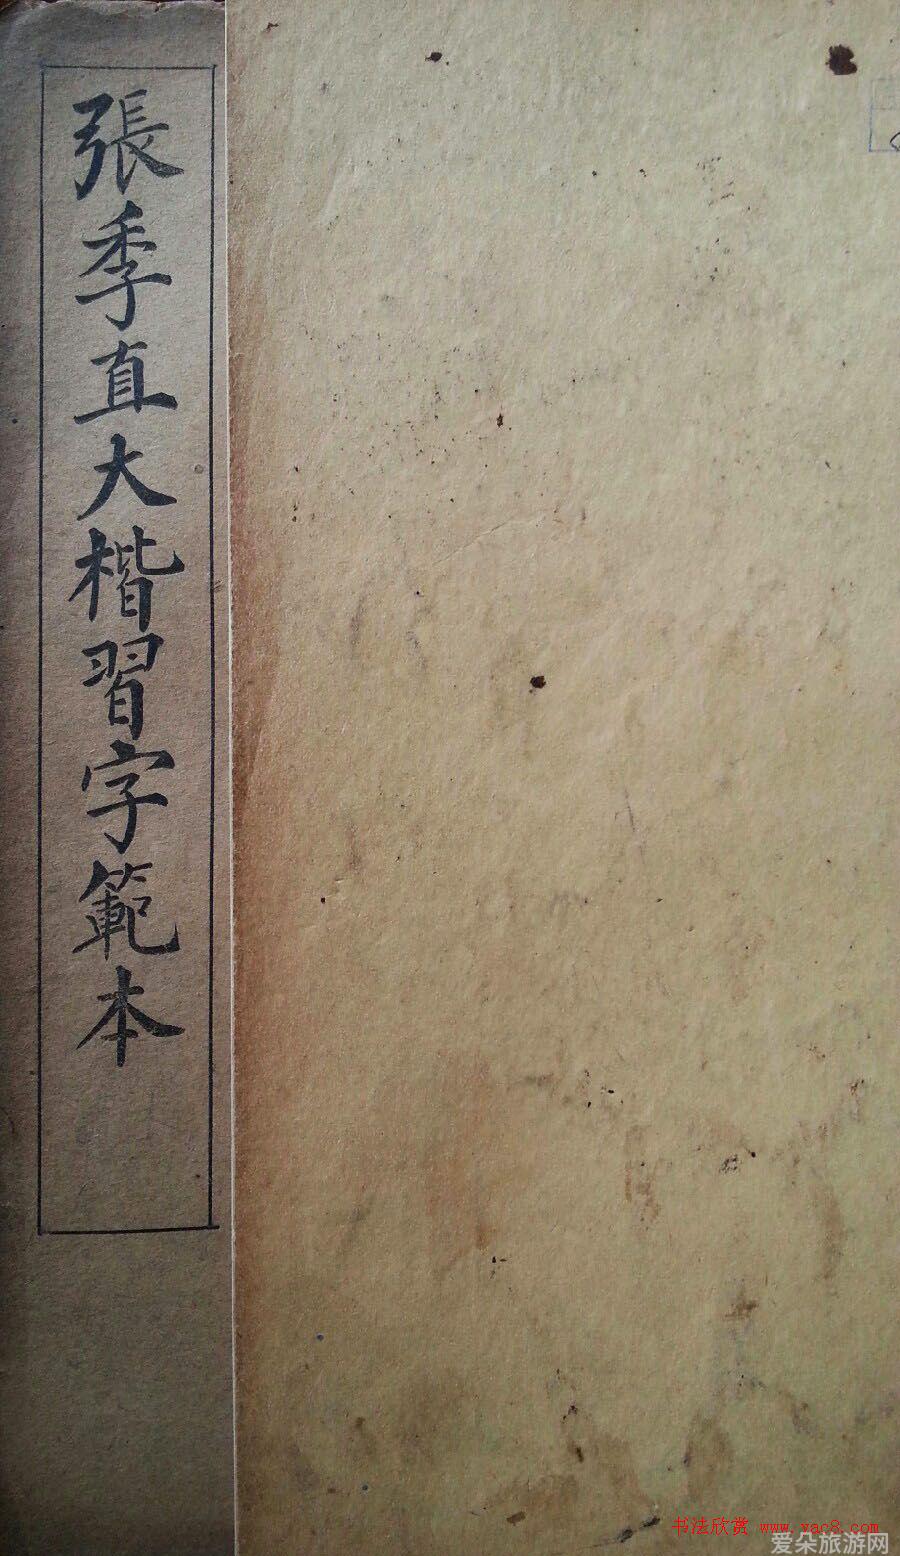 張季直大楷習字範本
书法欣赏 www.yac8.com
爱朵旅游网